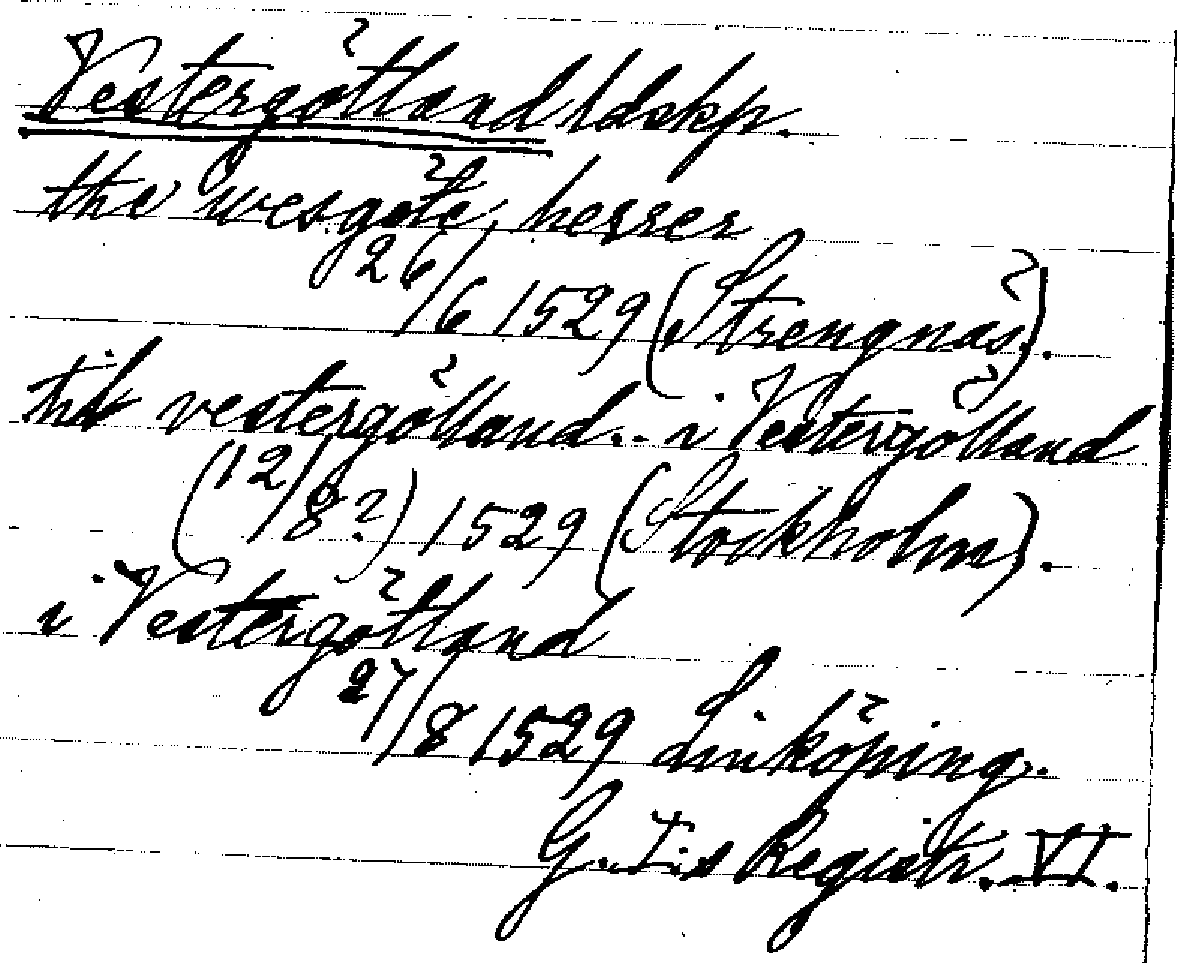 Vestergötland ldskp.
the wesgöte herrer
26/6 1529 (Strengnäs).
till vestergötland .. i Vestergötland
(12/8?) 1529 (Stockholm).
i Vestergötland
27/8 1529 Linköping.
G. I:s Registr. VI.